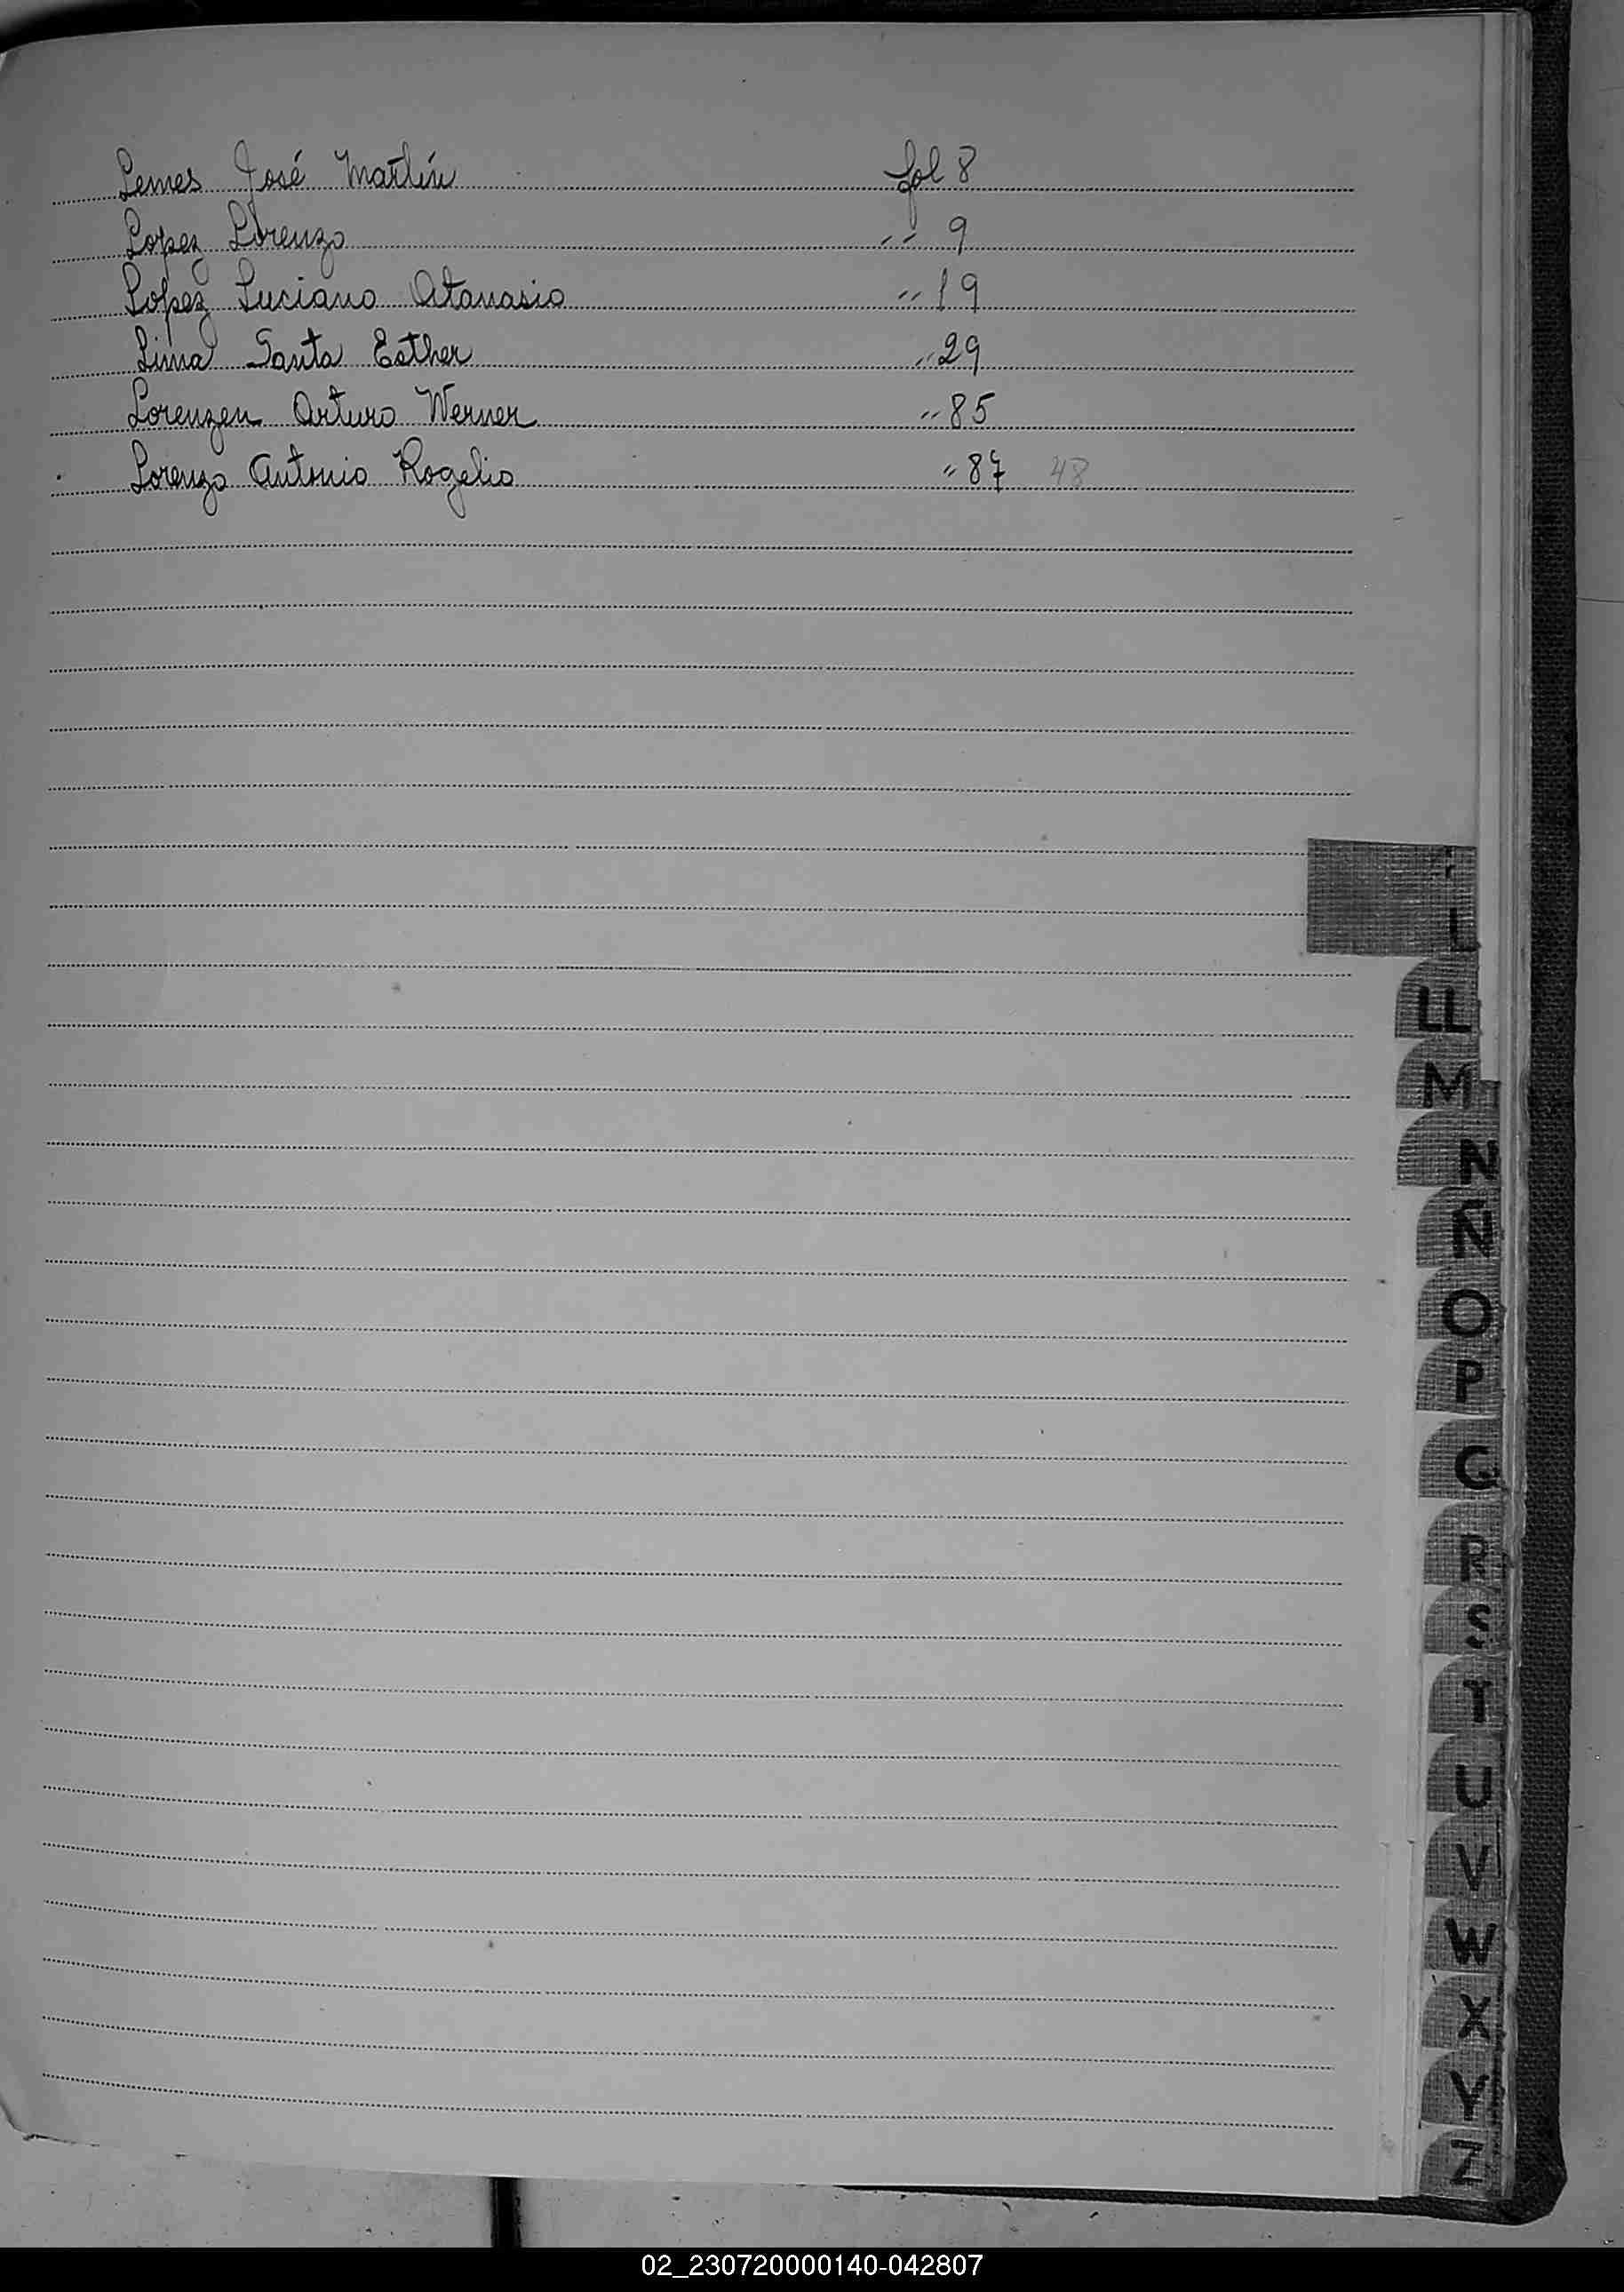 Lemes José Martín fol 8
Lopez Lorenzo " 9
Lopez Luciano Atanasio " 19
Lima Santa Esther " 29
Lorenzen Arturo Werner " 85
Lorenzo Antonio Rogelio " 87 48
L
LL
M
N
Ñ
O
P
Q
R
S
T
U
V
W
X
Y
Z
02_230720000140-042807